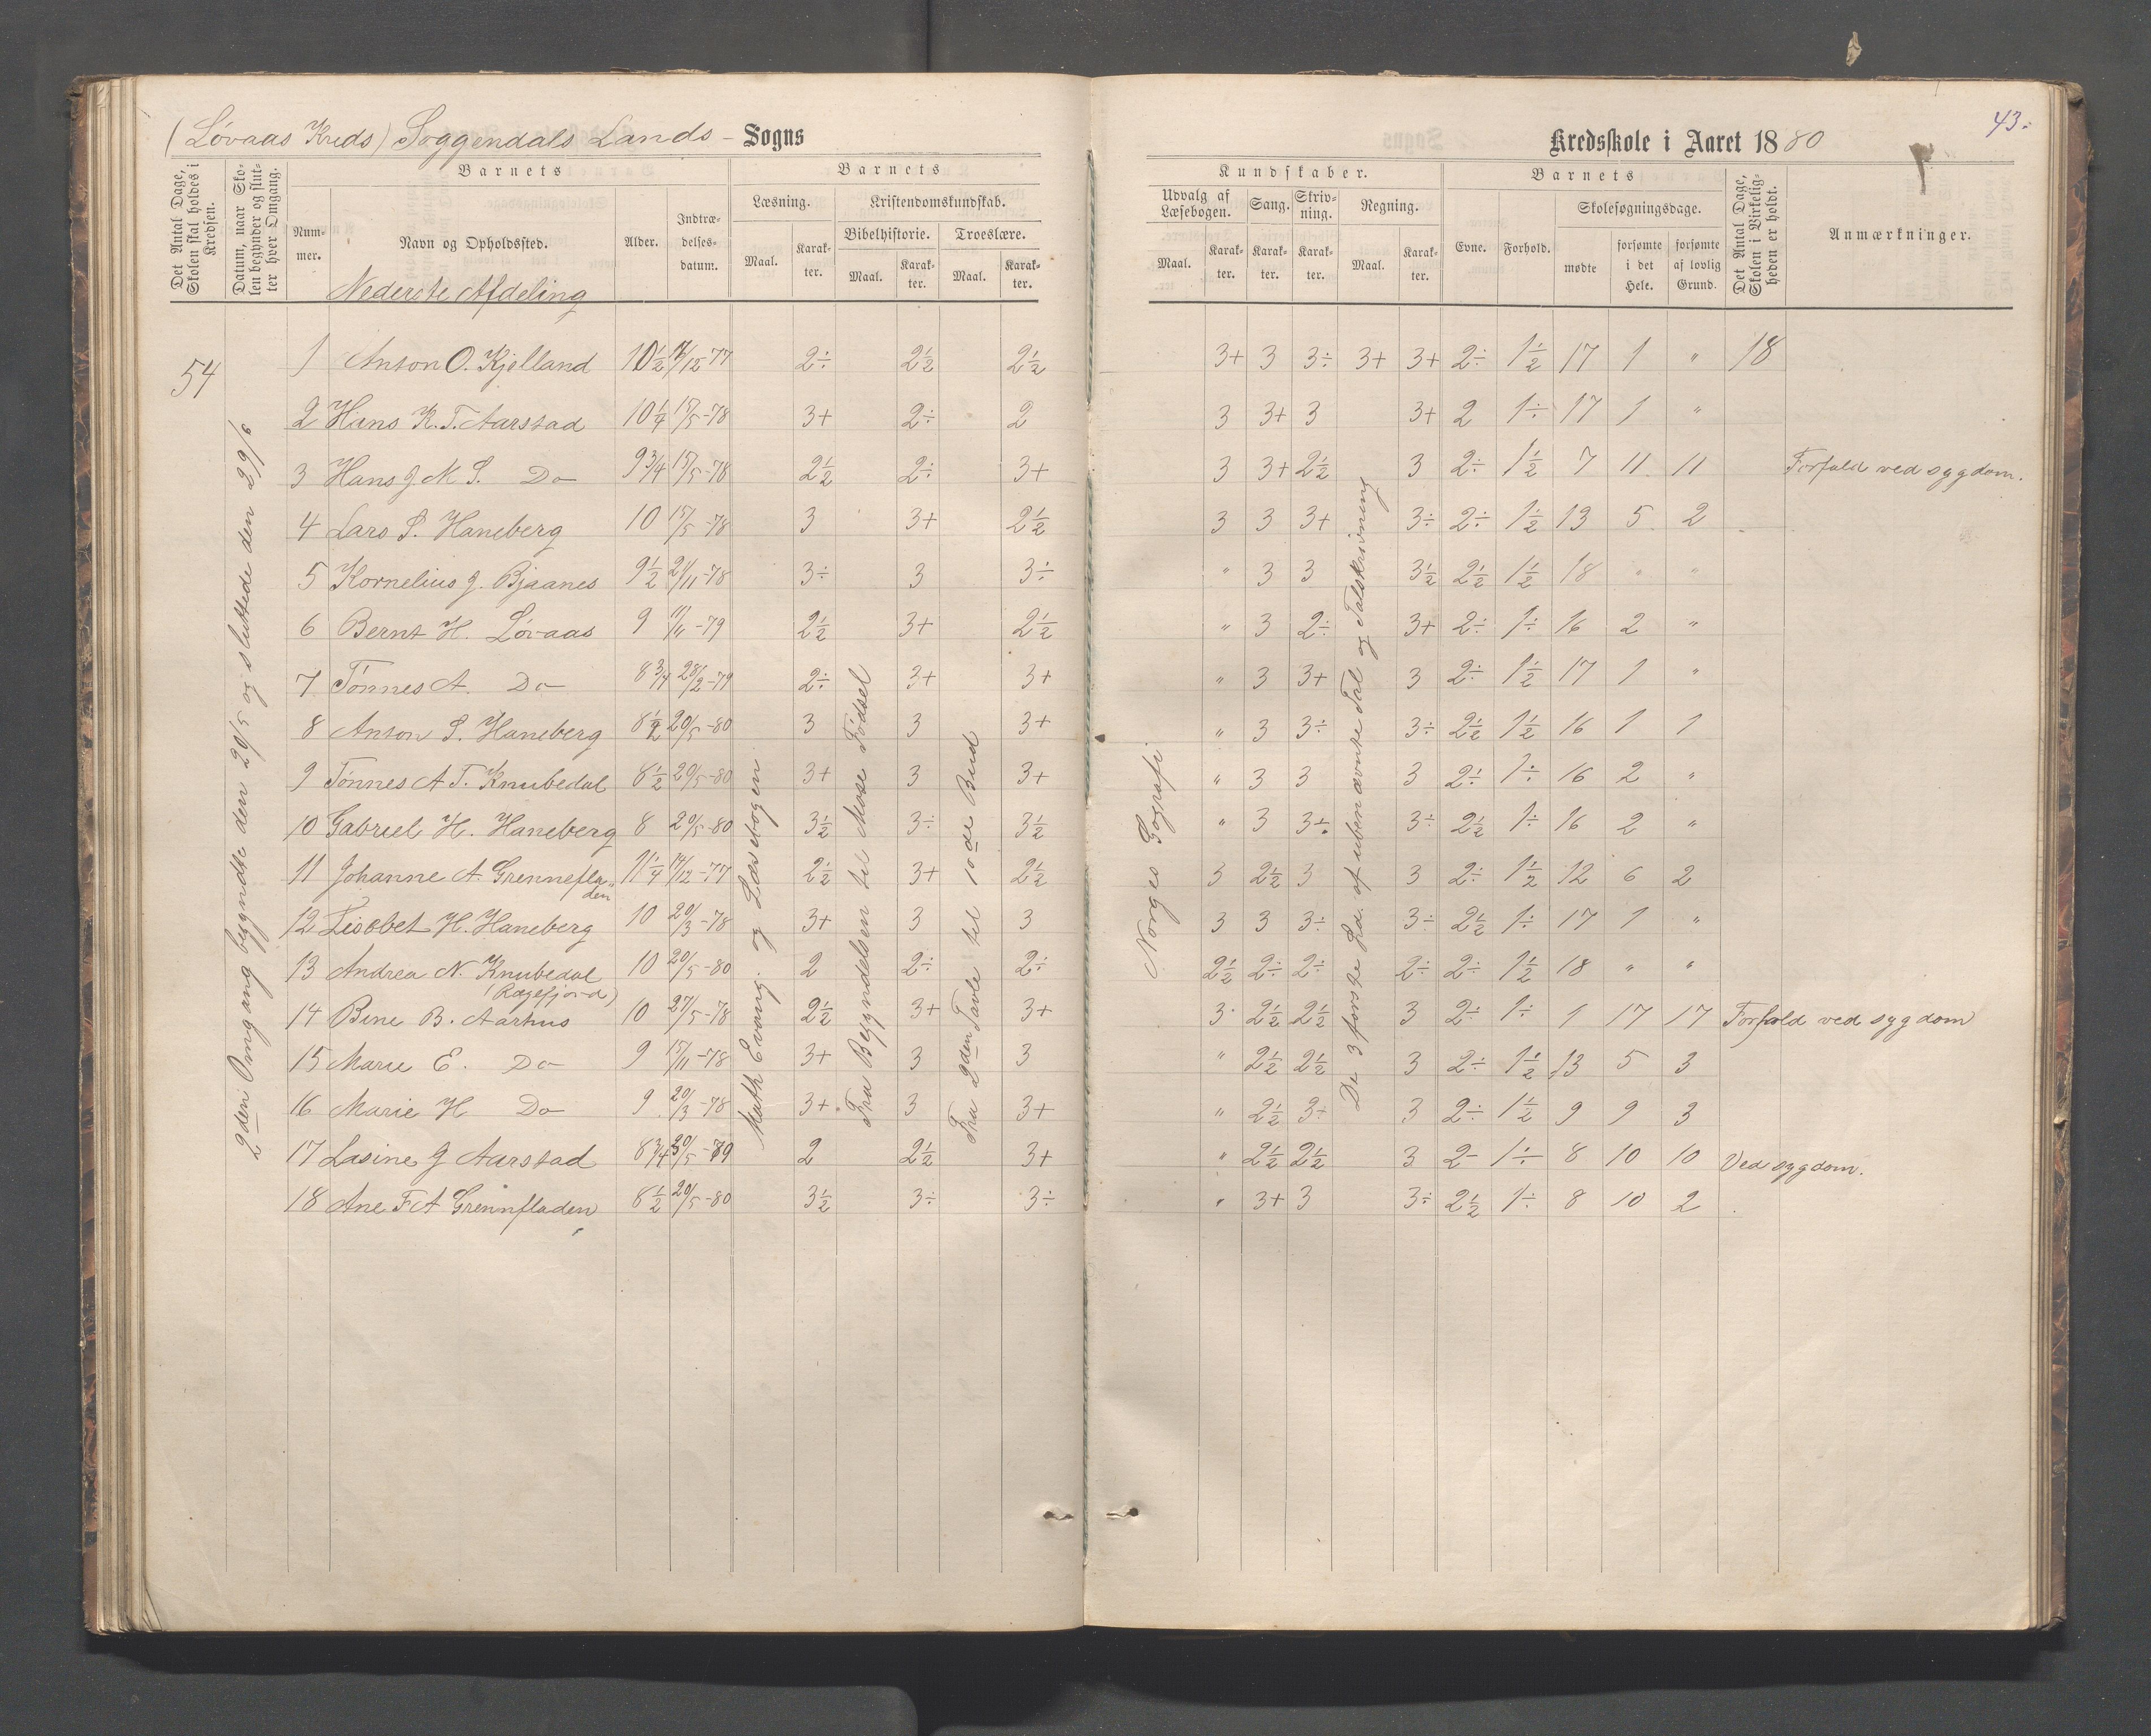 (Løvaas Kreds) Soggendals Lands - Sogns
Kredsskole i Aaret 1880
43.
Det Antal Dage, Skolen skal holdes i Kredsen.
Datum, naar Skolen begynder og slutter hver Omgang.
Barnets
Nummer.
Navn og Opholdssted.
Alder.
Indtrædelsesdatum.
Barnets
Læsning.
Maal.
Karakter.
Kristendomskundskab.
Bibelhistorie.
Maal.
Karakter.
Troeslære.
Maal.
Karakter.
Kundskaber.
Udvalg af Læsebogen.
Maal.
Karakter.
Sang.
Karakter.
Skrivning.
Karakter.
Regning.
Maal.
Karakter.
Barnets
Evne.
Forhold.
Skolesøgningsdage.
mødte
forsømte i det Hele.
forsømte af lovlig Grund.
Det Antal Dage, Skolen i Virkeligheden er holdt.
Anmærkninger.
Nederste Afdeling
54
2den Omgang begyndte den 29/5 og sluttede den 29/6
Math Evang. og Læsebogen
Fra Begyndelsen til Mose Fødsel
Fra 2den Tavle til 10de Bud
Norges Gografi
De 3 første Sd. af ubenævnte Tal og Talskrivning
1 Anton O. Kjelland 10½ 12-77 2÷ 2½ 2½ 3+ 3 3÷ 3+ 3+ 2÷ 1½ 17 1 " 18
2 Hans K. T. Aarstad 10¼ 15/5-78 3+ 2÷ 2 3 3+ 3 3+ 2 1÷ 17 1 "
3 Hans J. M S. Do 9¾ 15/5-78 2½ 2÷ 3+ 3 3+ 2½ 3 2÷ 1½ 7 11 11 Forfald ved sygdom.
4 Lars S. Haneberg 10 15/5-78 3 3+ 2½ 3 3 3+ 3÷ 2÷ 1½ 13 5 2
5 Kornelius J. Bjaanes 9½ 21/11-78 3÷ 3 3÷ " 3 3 3½ 2½ 1½ 18 " "
6 Bernt H. Løvaas 9 11/11-79 2½ 3+ 2½ " 3 2÷ 3+ 2÷ 1÷ 16 2 "
7 Tønnes A. Do 8¾ 28/2-79 2÷ 3+ 3+ " 3 3+ 3 2÷ 1½ 17 1 "
8 Anton S. Haneberg 8½ 20/5-80 3 3 3+ " 3 3÷ 3÷ 2½ 1½ 16 1 1
9 Tønnes A T. Knubedal 8½ 20/5-80 3+ 3 3+ " 3 3 3 2÷ 1÷ 16 2 "
10 Gabriel H. Haneberg 8 20/5-80 3½ 3÷ 3½ " 3 3÷ 3÷ 2½ 1÷ 16 2 "
11 Johanne A. Grennefladen 11¼ 14/12-77 2½ 3+ 2½ 3 2½ 3 3 2÷ 1½ 12 6 2
12 Lisbbet H. Haneberg 10 20/3-78 3+ 3 3 3 3 3÷ 3÷ 2½ 1÷ 17 1 "
13 Andrea N. Knubedal (Rægefjord) 10 20/5-80 2 2÷ 2÷ 2½ 2÷ 2÷ 2÷ 2÷ 1½ 18 " "
14 Bine B. Aarhus 10 27/5-78 2½ 3+ 3+ 3 2½ 2½ 3 2÷ 1÷ 1 17 17 Forfald ved sygdom
15 Marie E. Do 9 15/11-78 3+ 3 3 " 2½ 2½ 3 2÷ 1½ 13 5 3
16 Marie H Do 9 20/3-78 3+ 3 3+ " 2½ 3÷ 3 2÷ 1½ 9 9 3
17 Lasine J Aarstad 8¾ 20/5-79 2 2½ 3+ " 2½ 2½ 3 2- 1÷ 8 10 10 Ved sygdom.
18 Ane F A Grennfladen 8½ 20/5-80 3½ 3÷ 3÷ " 3+ 3 3÷ 2½ 1÷ 8 10 2